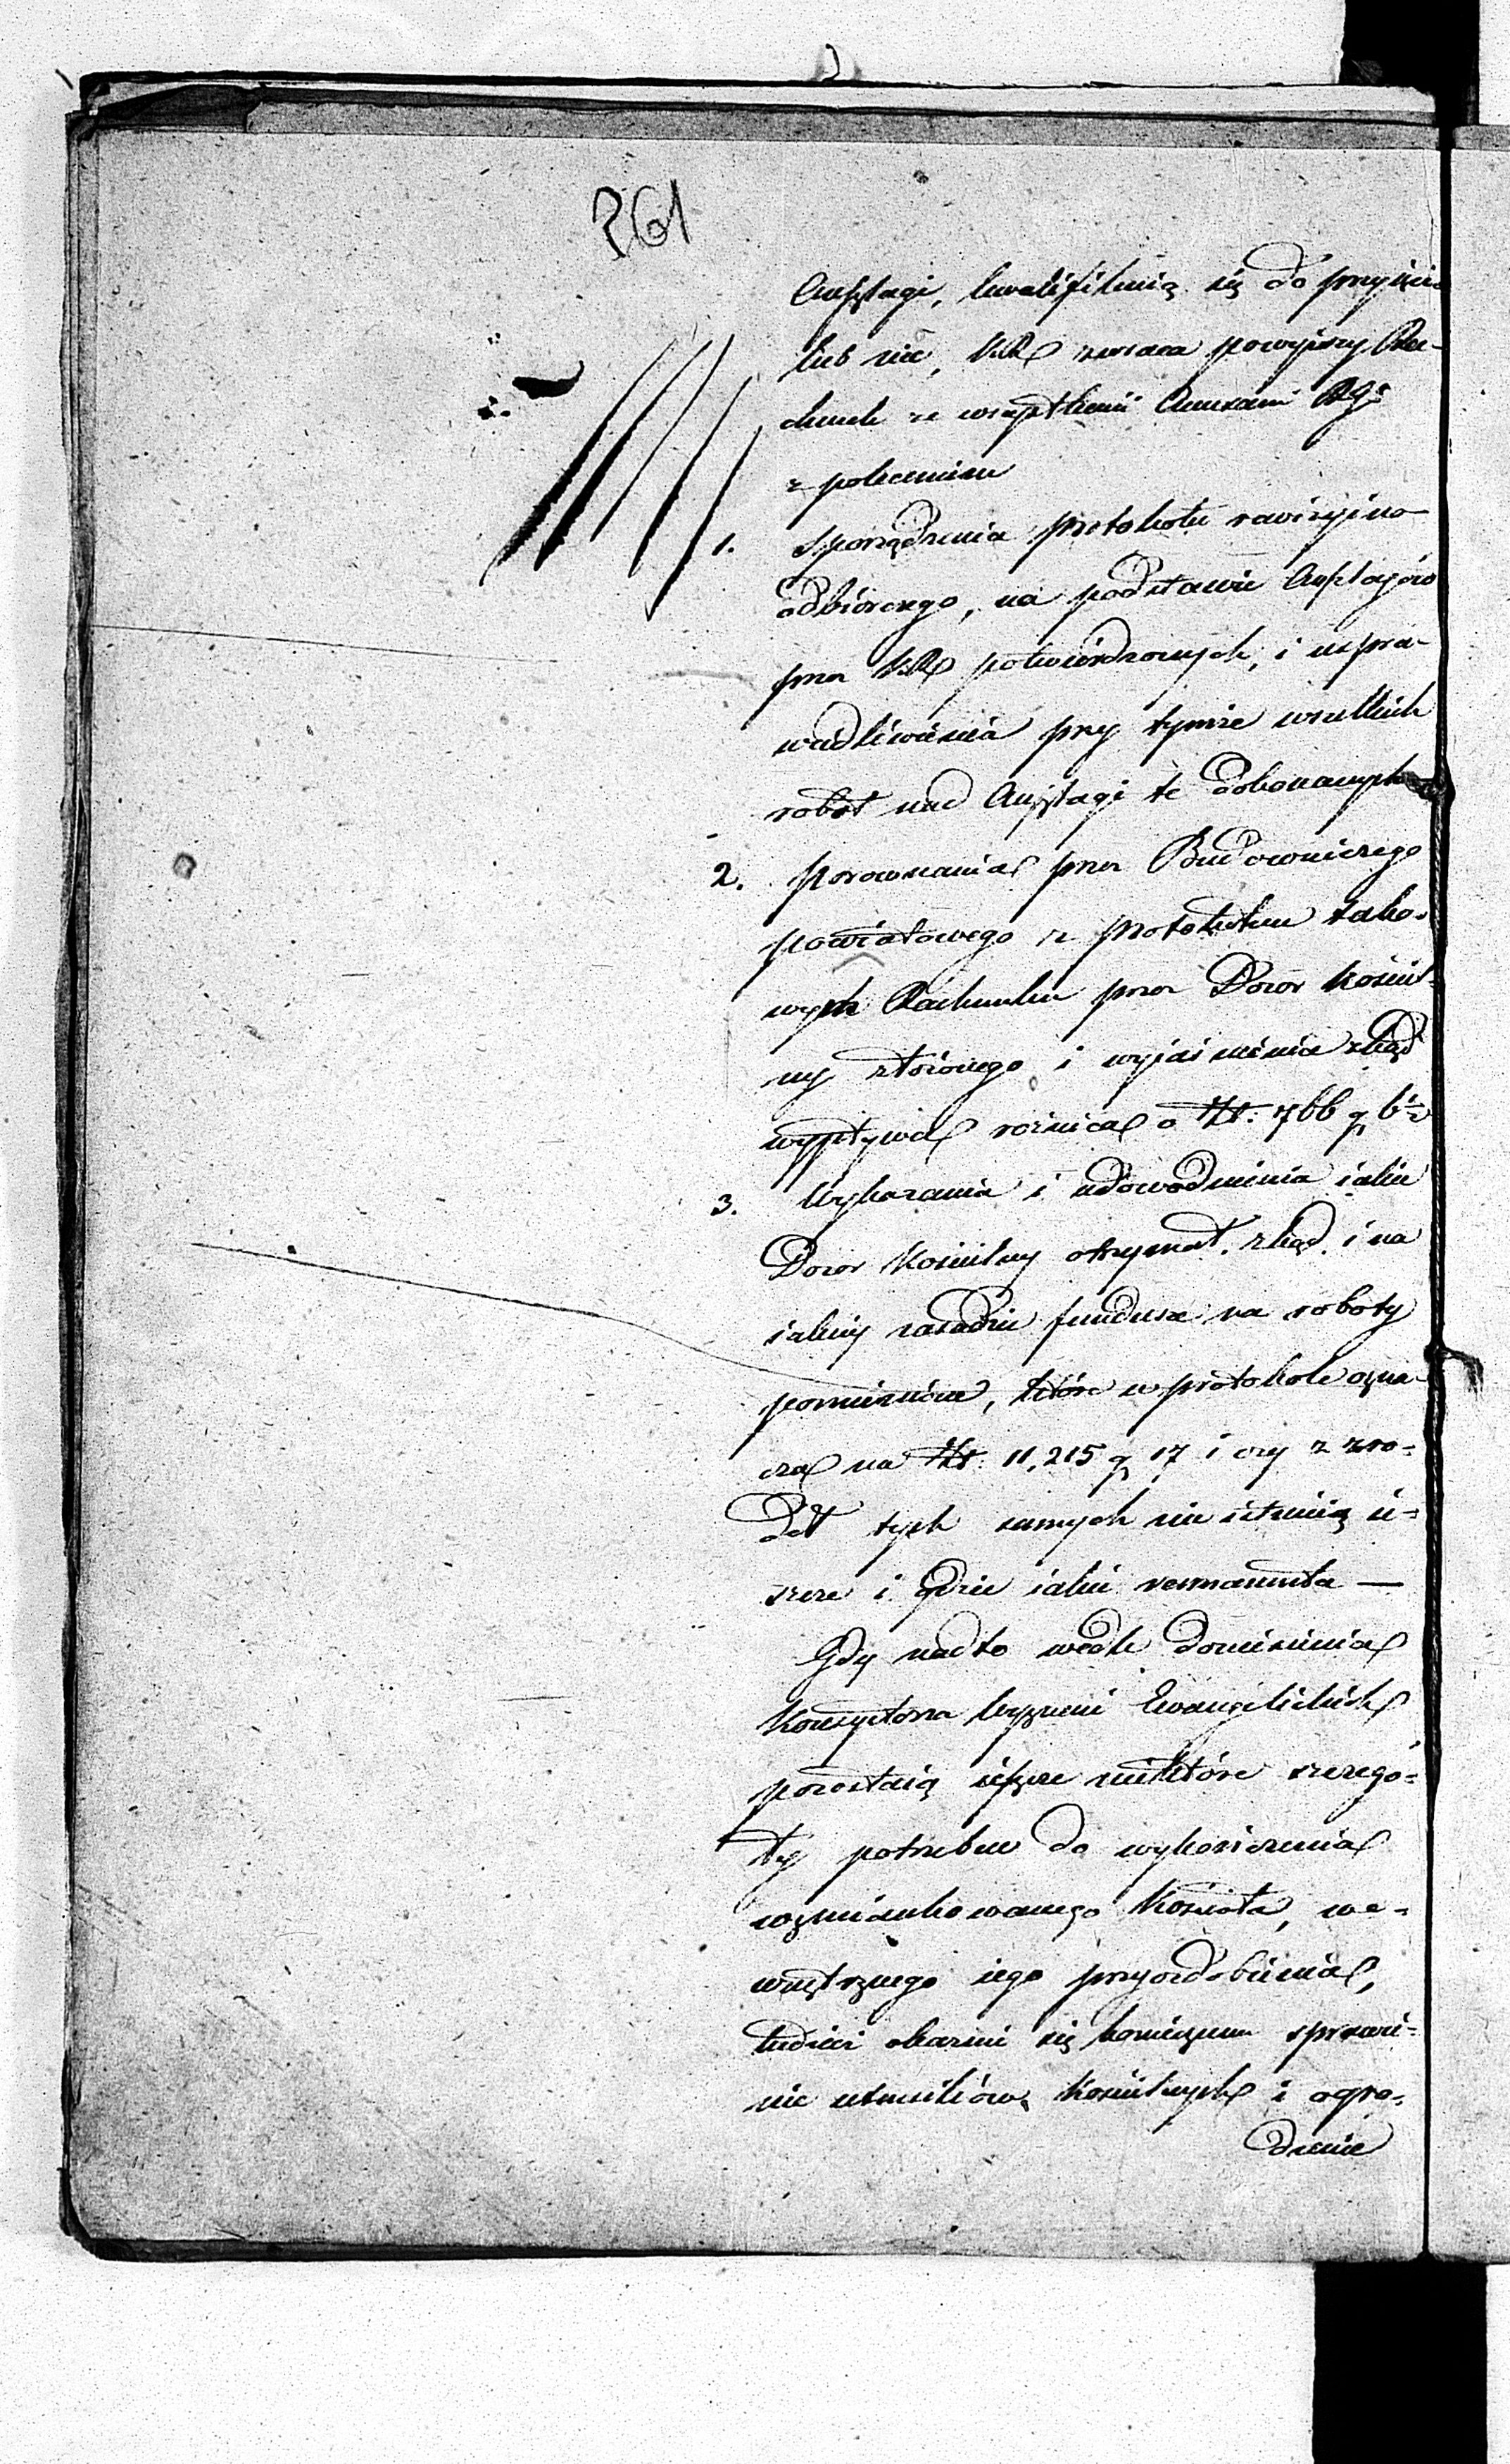 261
Anszlagi, kwalifikuią się do przyięcia
lub nie, KR zwraca powyższy Ra-
chunek ze wszystkiemi Annexami
z poleceniem
1. sporządzenia protokołu rewizyino
odbiorczego, na podstawie Anszlagów
przez KR potwierdzonych, i uspra-
wiedliwienia przy tymże wszelkich
robót nad Anszlagi te dokonanych
2. porownania przez Budowniczego
powiatowego z protokołem tako-
wym Rachunku przez Dozor Kościel-
ny złożonego i wyiaśnienia zkąd
wypływa rożnica o Złt. 766 g 6½
3. Wykazania i udowodnienia iakie
Dozor Kościelny otrzymał, zkąd, i na
iakiey zasadzie fundusze na roboty
pomienione, które w protokole ozna-
cza na Złt. 11,215 g 17 i czy z zro-
deł tych samych nie istnieią ie-
szcze i gdzie iakie remanenta —
Gdy nadto wedle doniesienia
Konsystorza Wyznań Ewangelickich
pozostaią ieszcze niektóre szczegó-
ły potrzebne do wykończenia
wzmiankowanego Kościoła, we-
wnętrznego iego przyozdobienia,
tudzież okazuie się koniecznem sprawie-
nie utensiliów Kościelnych i ogro-
dzenie